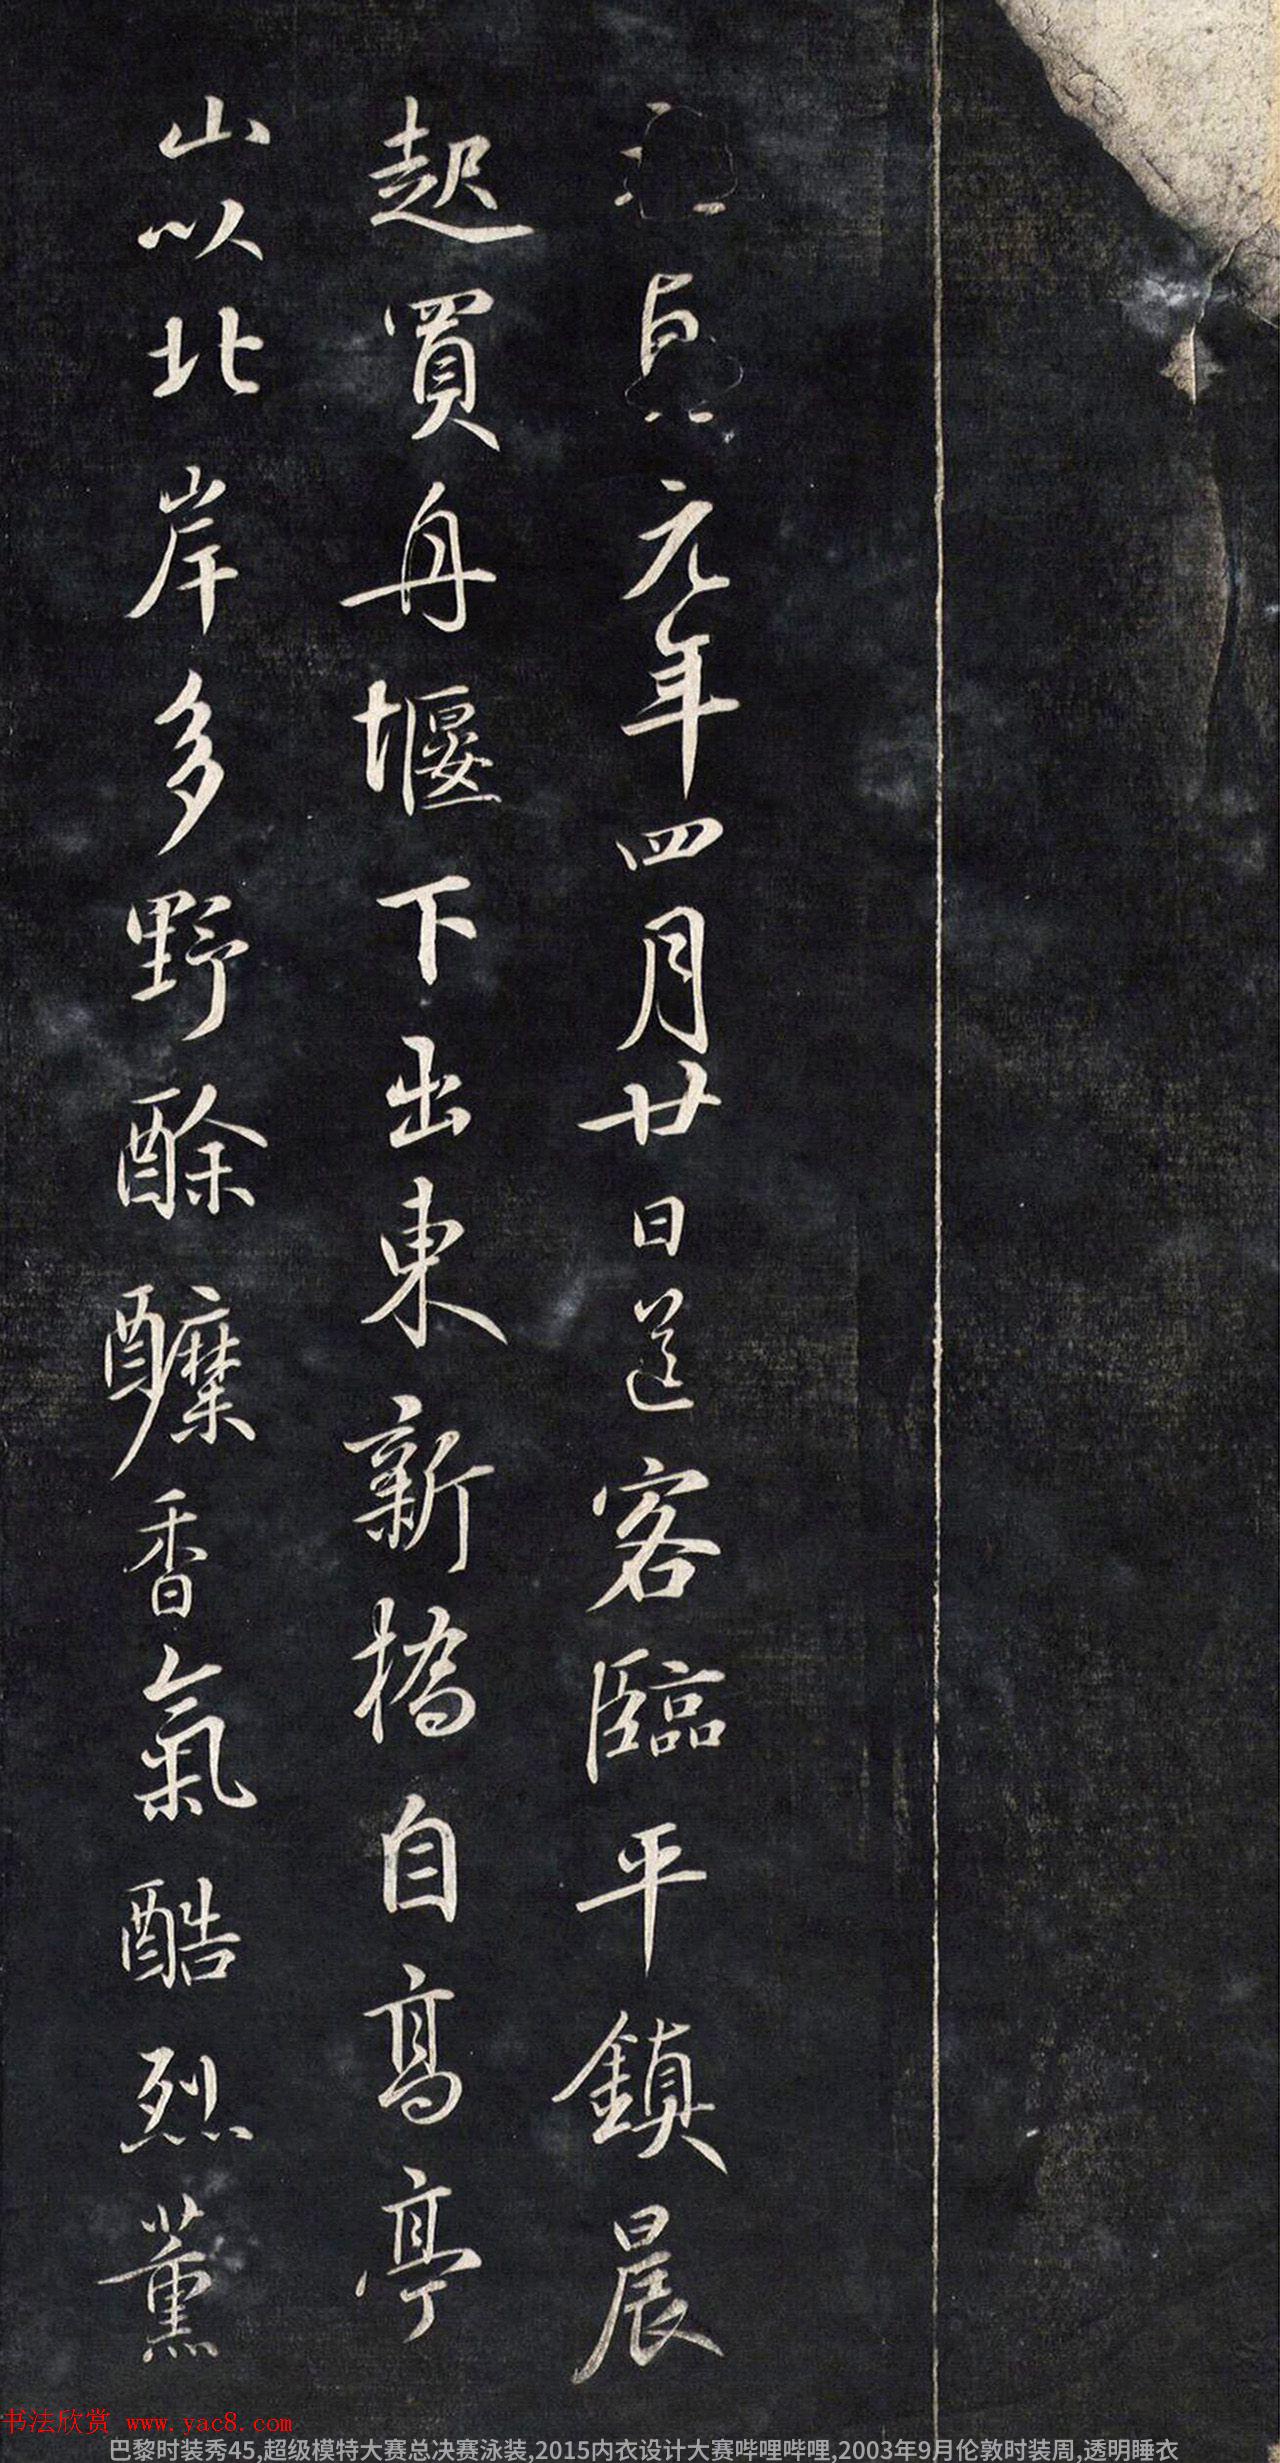 元年四月廿日送客臨平鎮晨
起買舟堰下出東新橋自高亭
山以北岸多野酴醿香氣酷烈薰
书法欣赏 www.yac8.com
巴黎时装秀45,超级模特大赛总决赛泳装,2015内衣设计大赛哔哩哔哩,2003年9月伦敦时装周,透明睡衣